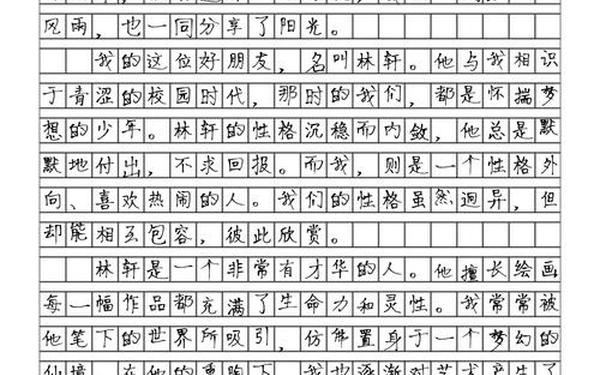 风雨，也一同分享了阳光。
我的这位好朋友，名叫林轩。他与我相识
于青涩的校园时代，那时的我们，都是怀揣梦
想的少年。林轩的性格沉稳而内敛，他总是默
默地付出，不求回报。而我，则是一个性格外
向、喜欢热闹的人。我们的性格虽然迥异，但
却能相互包容，彼此欣赏。
林轩是一个非常有才华的人。他擅长绘画
每一幅作品都充满了生命力和灵性。我常常被
他笔下的世界所吸引，仿佛置身于一个梦幻的
仙境。在他的熏陶下，我也逐渐对艺术产生了